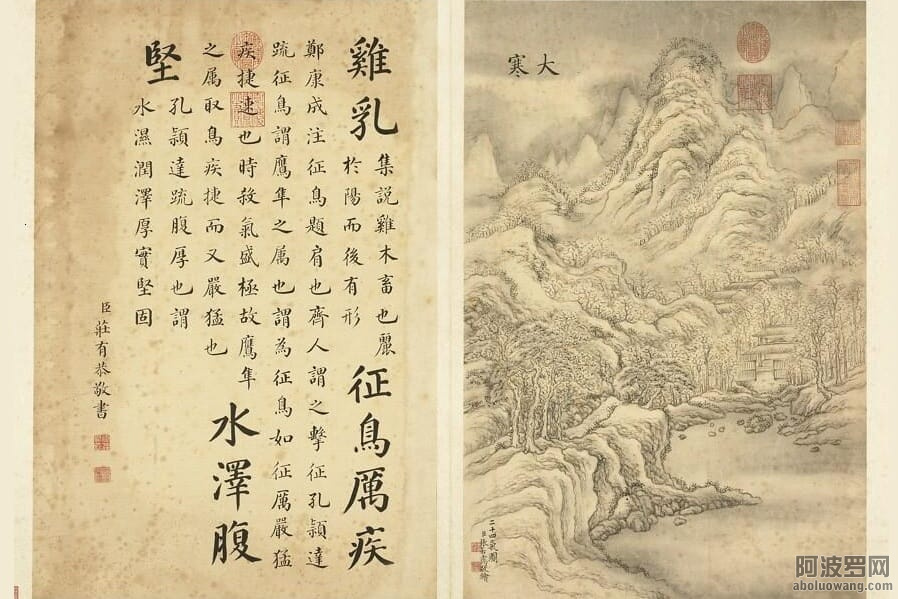 大寒
二十四氣圖
臣張若敬繪
雞乳
集説雞木畜也麗
於陽而後有形
征鳥厲疾
鄭康成注征鳥題肩也齊人謂之擊征孔頴達
疏征鳥謂鷹隼之属也謂為征鳥如征厲嚴猛
疾捷速也時殺氣盛極故鷹隼
之属取鳥疾捷而又嚴猛也
水澤腹
堅
孔頴達疏腹厚也謂
水濕潤澤厚實堅固
臣莊有恭敬書
阿波罗网
aboluowang.com